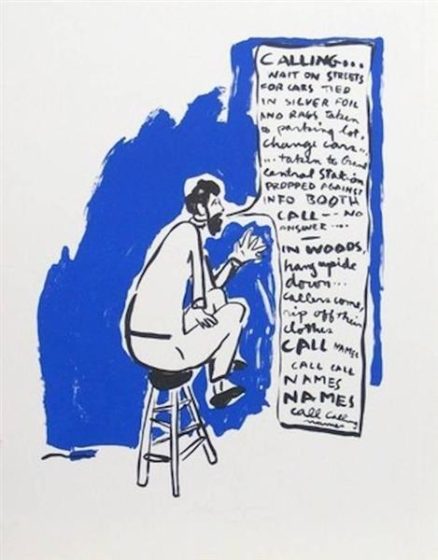 CALLING...
WAIT ON STREETS
FOR CARS TIED
IN SILVER FOIL
AND RAGS taken
to parking lot,
change cars...
...taken to Grand
Central Station
PROPPED AGAINST
INFO BOOTH
CALL -- NO
ANSWER ....
IN WOODS,
hang upside
down...
callers come,
rip off their
clothes
CALL NAMES
CALL CALL
NAMES
NAMES
call calling
names